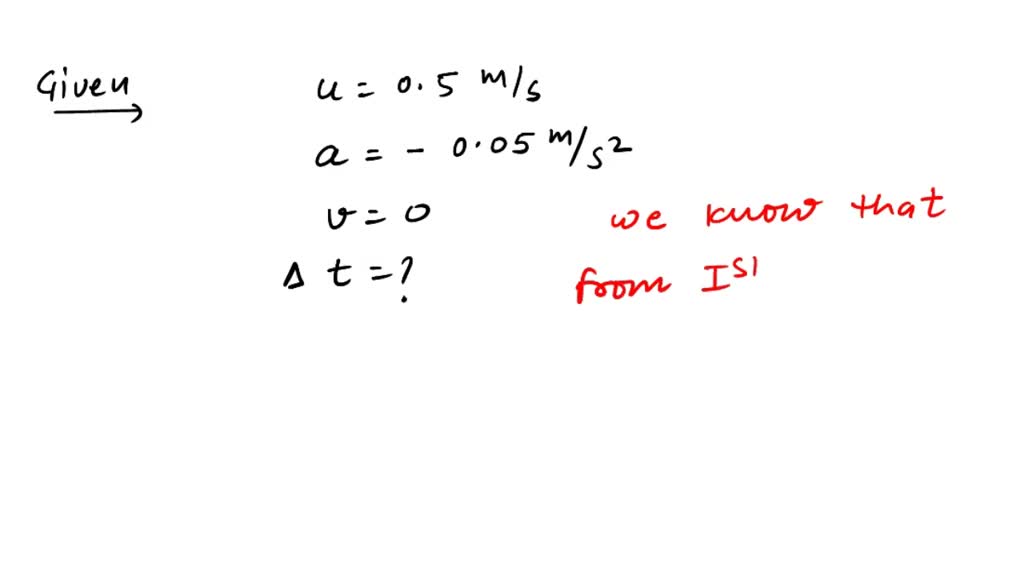 Given
u = 0.5 m/s
a = - 0.05 m/s2
v = 0
Δ t = ?
we know that
from Isı